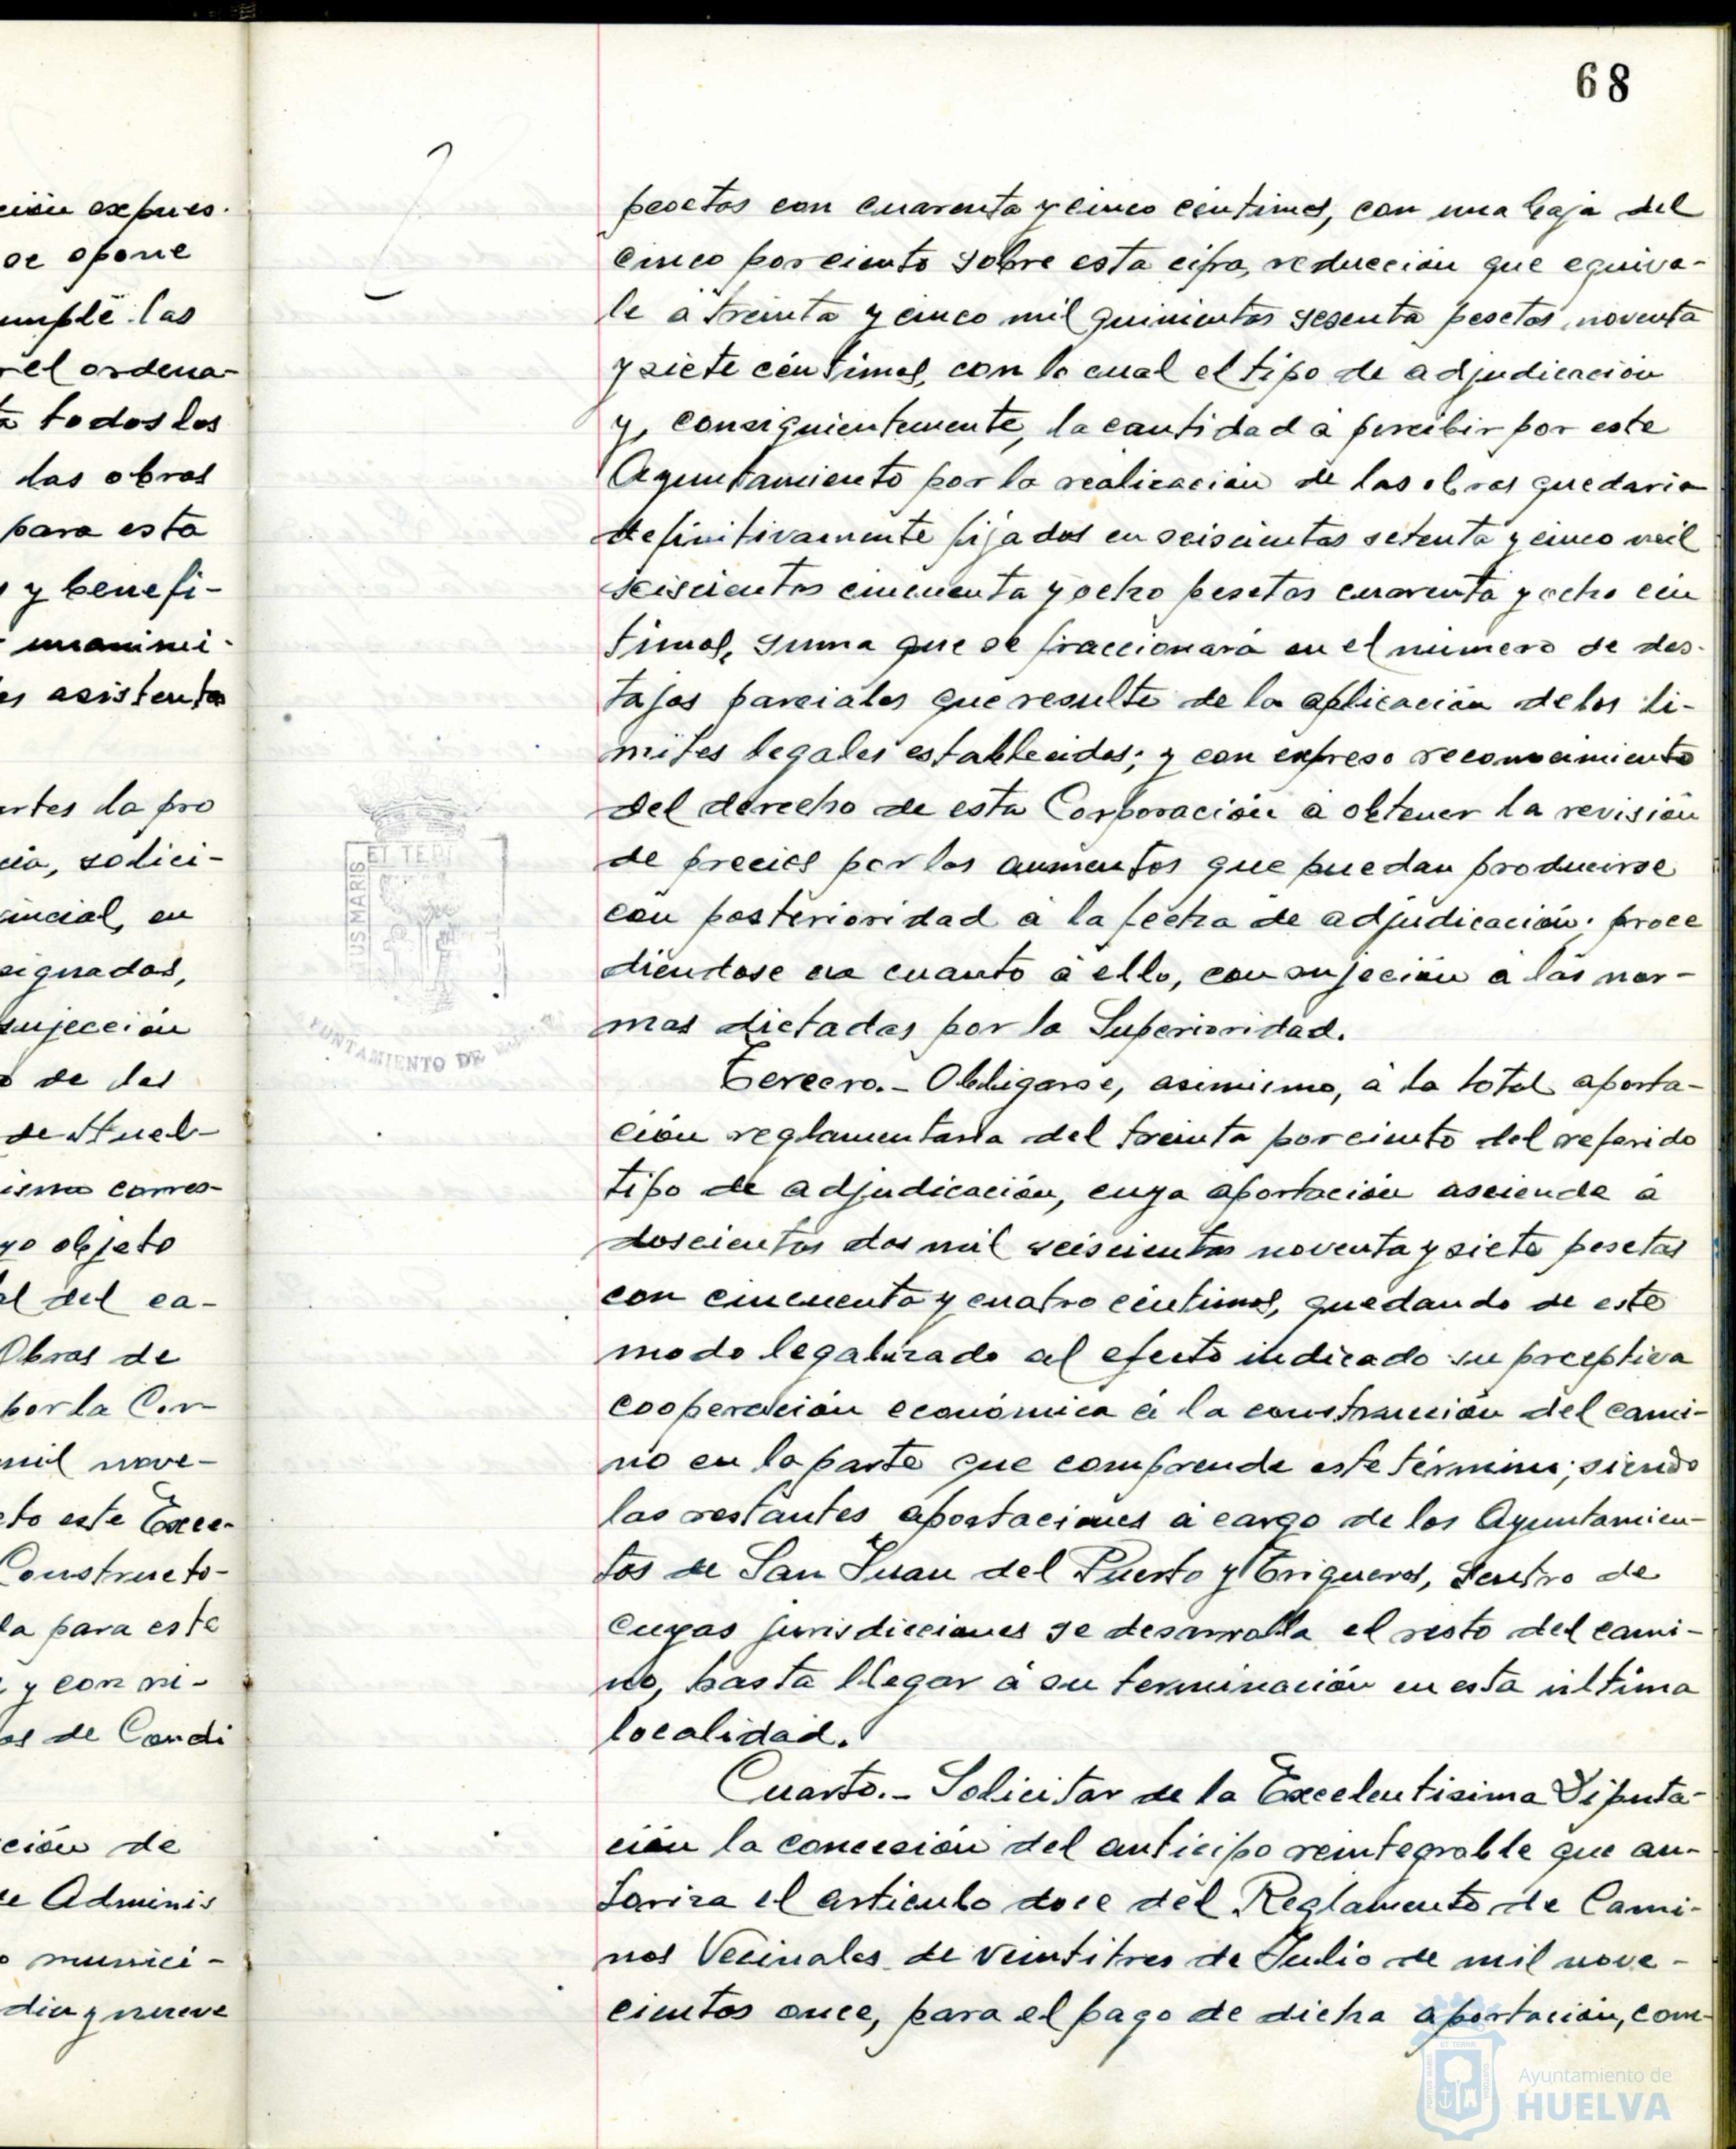 68
ción expues-
se opone
umple las
el ordena-
todos los
las obras
para esta
y benefi-
unanimi-
es asistentes
rtes la pro
cia, solici-
incial, en
signadas,
sujección
o de las
de Huel-
ismo corres-
yo objeto
al del ca-
Obras de
por la Cor-
mil nove-
cto este Exce-
Constructo-
la para este
y con ni-
os de Condi
ción de
de Adminis
o munici-
diez y nueve
pesetas con cuarenta y cinco céntimos, con una baja del
cinco por ciento sobre esta cifra, reducción que equiva-
le á treinta y cinco mil quinientas sesenta pesetas noventa
y siete céntimos, con lo cual el tipo de adjudicación
y, consiguientemente, la cantidad á percibir por este
Ayuntamiento por la realización de las obras quedaria
definitivamente fijados en seiscientas setenta y cinco mil
seiscientas cincuenta y ocho pesetas cuarenta y ocho cén
timos, suma que se fraccionará en el número de des-
tajos parciales que resulte de la aplicación de los li-
mites legales establecidos; y con expreso reconocimiento
del derecho de esta Corporación á obtener la revisión
de precios por los aumentos que puedan producirse
con posterioridad á la fecha de adjudicación; proce
diéndose en cuanto á ello, con sujeción á las nor-
mas dictadas por la Superioridad.
Tercero.- Obligarse, asimismo, á la total aporta-
ción reglamentaria del treinta por ciento del referido
tipo de adjudicación, cuya aportación asciende á
doscientas dos mil seiscientas noventa y siete pesetas
con cincuenta y cuatro céntimos, quedando de este
modo legalizado al efecto indicado su preceptiva
cooperación económica á la construcción del cami-
no en la parte que comprende este término; siendo
las restantes aportaciones á cargo de los Ayuntamien-
tos de San Juan del Puerto y Trigueros, dentro de
cuyas jurisdicciones se desarrolla el resto del cami-
no, hasta llegar á su terminación en esta última
localidad.
Cuarto.- Solicitar de la Excelentisima Diputa-
ción la concesión del anticipo reintegrable que au-
toriza el artículo doce del Reglamento de Cami-
nos Vecinales de veintitres de Julio de mil nove-
cientos once, para el pago de dicha aportación, com-
ET TERR
US MARIS
UNTAMIENTO DE
Ayuntamiento de
HUELVA